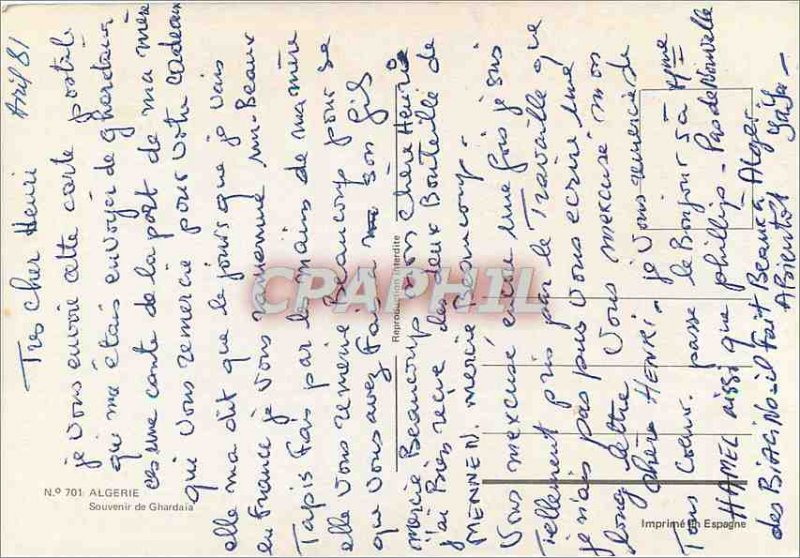 Avril 81
Tres cher Henri
je vous envoie cette carte postale
qui m'a étais envoyér de ghardaïa
ces une carte de la part de ma mère
qui vous remercie pour votre cadeaux
elle ma dit que le jours que je vais
en France je vous ramenne un Beaux
Tapis Fais par le mains de ma mère
elle vous remercie Beaucoup pour se
que vous avez Fait a son fils
mercie Beaucoup mon chere Henri
j'ai Bien recue des deux Bouteille de
MENNEN. mercie Beaucoup.
Vous mexcusé encore une fois je suis
Tellement pris par le Travaille que
je n'ais pas pus vous ecrire une
long lettre Vous mexcusé mon
chère HENRI. je vous remercie de
Tous Coeur. passe le Bonjour Sa Mme
HAMEL aissi que phillip. Pas de Nouvelle
des BiAS. No il fait Beau a Alger
A Bientot
N.º 701 ALGERIE
Souvenir de Ghardaïa
Reproduction Interdite
Imprimé en Espagne
CPAPHIL